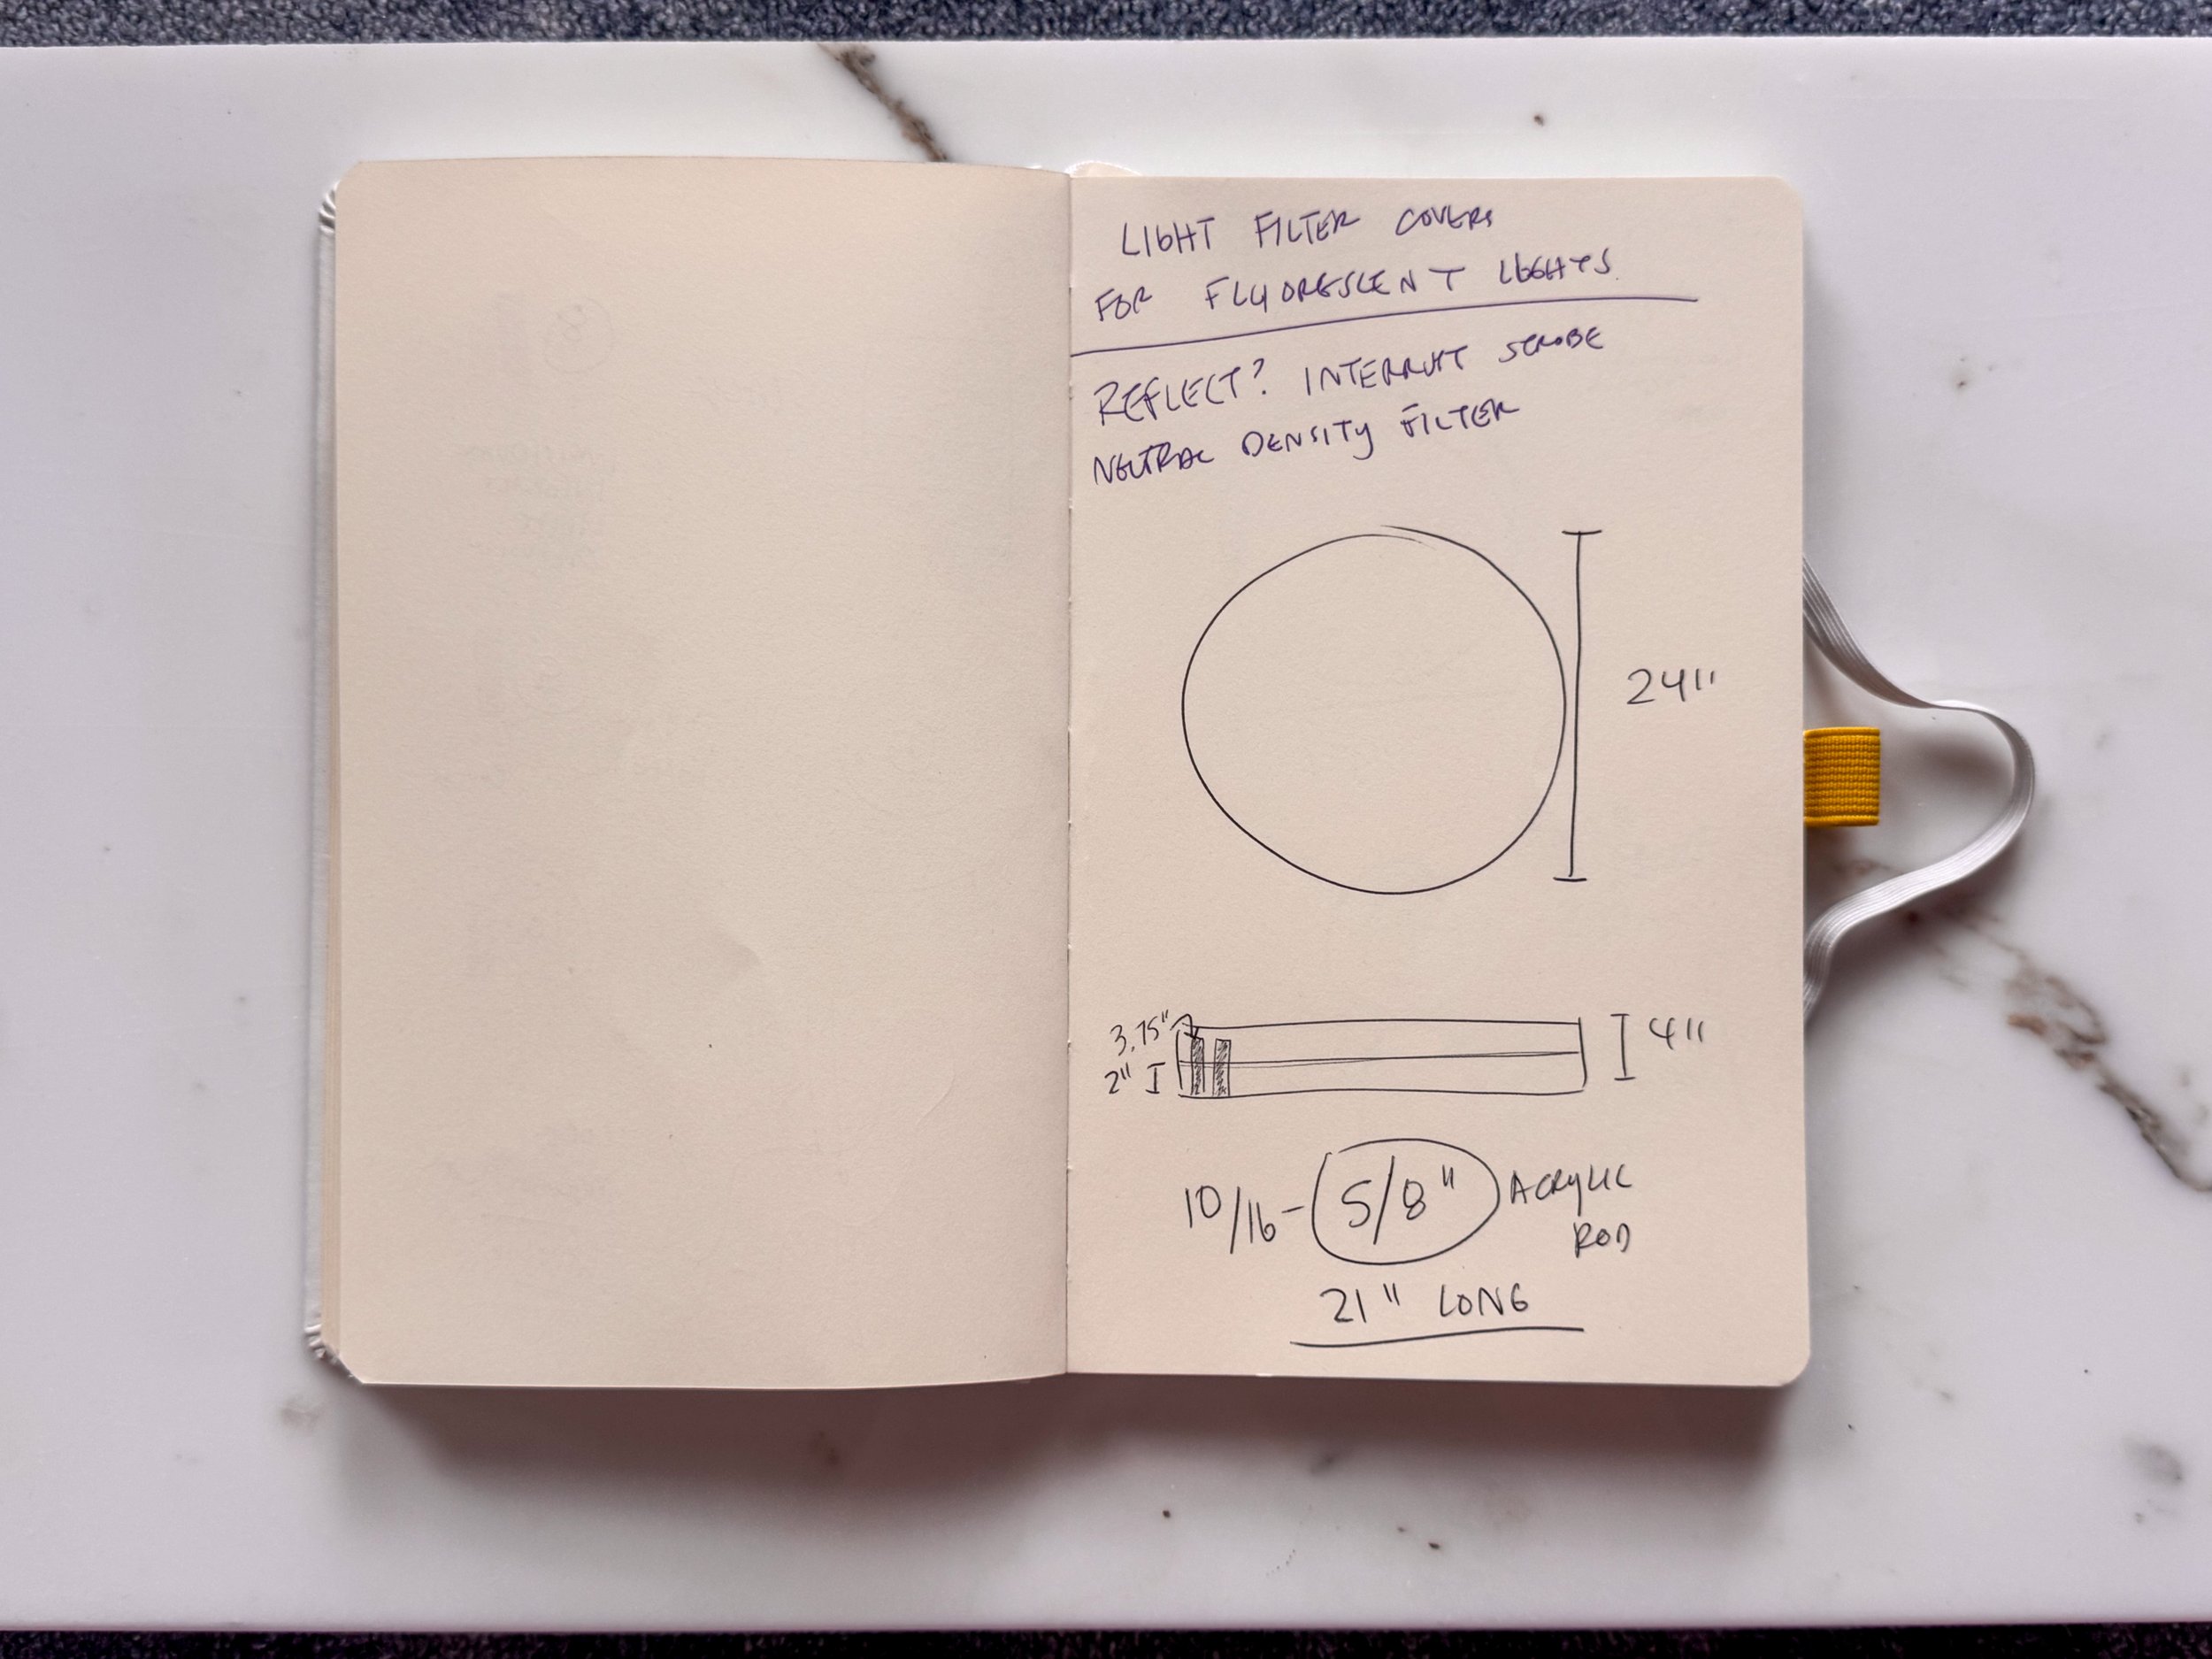 LIGHT FILTER COVERS
FOR FLUORESCENT LIGHTS.
REFLECT? INTERRUPT STROBE
NEUTRAL DENSITY FILTER
24"
3.75"
4"
2"
10/16 - 5/8" ACRYLIC
ROD
21" LONG